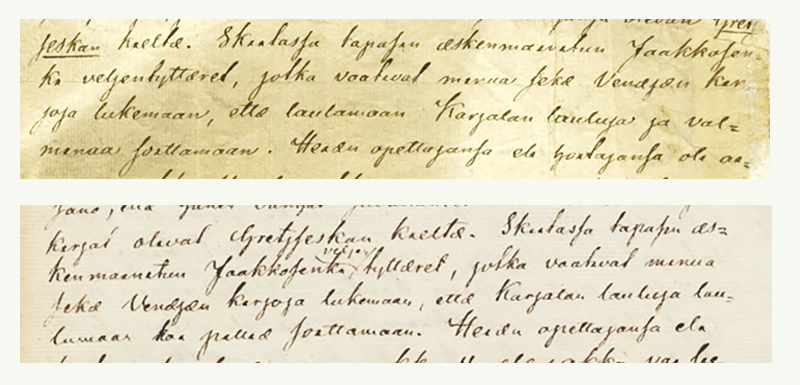 olevan Gret=
jeskan kieltæ. Skaatassa tapasin æskenmainitun Jaakkosen=
ka veljentyttæret, jotka vaativat minua sekæ Venæjæn kir=
joja lukemaan, ettæ laulamaan Karjalan lauluja ja val=
minaa soittamaan. Heidæn opettajansa eli hoitajansa oli aa=
kirjat olivat Gretsjeskan kieltæ. Skaatassa tapasin æs=
veljen
kenmainitun Jaakkosenka tyttæret, jotka vaativat minua
sekæ Venæjæn kirjoja lukemaan, ettæ Karjalan lauluja lau=
lumaan soittamaan. Heidæn opettajansa eli